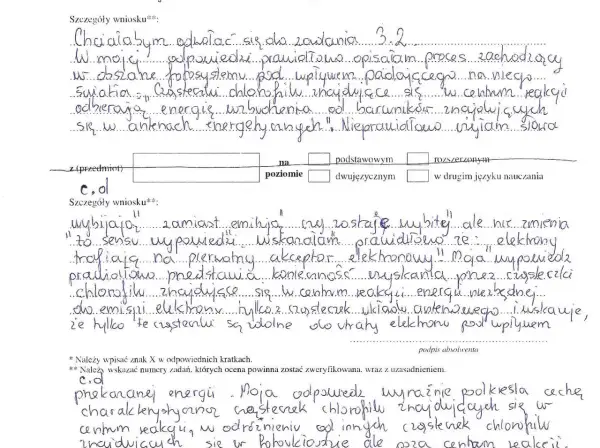 Szczegóły wniosku**:
Chciałabym odwołać się do zadania 3.2
W mojej odpowiedzi prawidłowo opisałam proces zachodzący
w obszarze fotosystemu pod wpływem padającego na niego
światła. "Cząsteczki chlorofilu znajdujące się w centrum reakcji
odbierają energię wzbudzenia od barwników znajdujących
się w antenach energetycznych". Nieprawidłowo użyłam słowa
z (przedmiot) na poziomie podstawowym rozszerzonym
dwujęzycznym w drugim języku nauczania
c.d
Szczegóły wniosku**:
"wybijają" zamiast emitują czy zostaje wybity" ale nie zmienia
to sensu wypowiedzi. wskazałam prawidłowo że: "elektrony
trafiają na pierwotny akceptor elektronowy". Moja wypowiedź
prawidłowo przedstawia konieczność uzyskania przez cząsteczki
chlorofilu znajdujące się w centrum reakcji energii niezbędnej
do emisji elektronu tylko z cząsteczek układu antenowego i wskazuje,
że tylko te cząsteczki są zdolne do utraty elektronu pod wpływem
podpis absolwenta
* Należy wpisać znak X w odpowiednich kratkach.
** Należy wskazać numery zadań, których ocena powinna zostać zweryfikowana, wraz z uzasadnieniem.
c.d
przekazanej energii. Moja odpowiedź wyraźnie podkreśla cechę
charakterystyczną cząsteczek chlorofilu znajdujących się w
centrum reakcji, w odróżnieniu od innych cząsteczek chlorofilu
znajdujących się w fotoukładzie ale poza centrum reakcji.